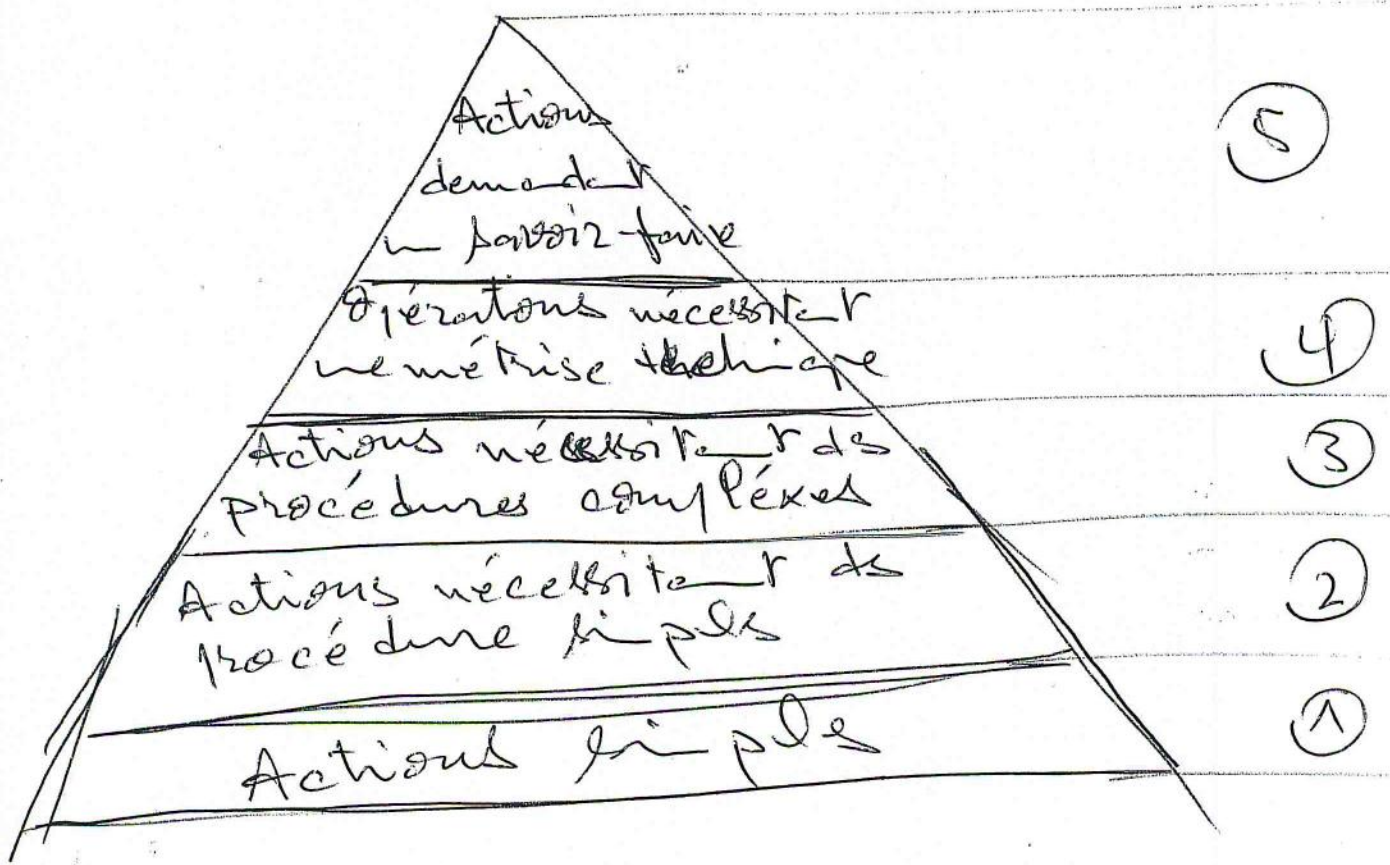 Actions
demandant
un savoir-faire
5
Opérations nécessitant
une métrise thechnique
4
Actions nécessitant ds
procédures compléxes
3
Actions nécessitant ds
procédure simples
2
Actions simples
1